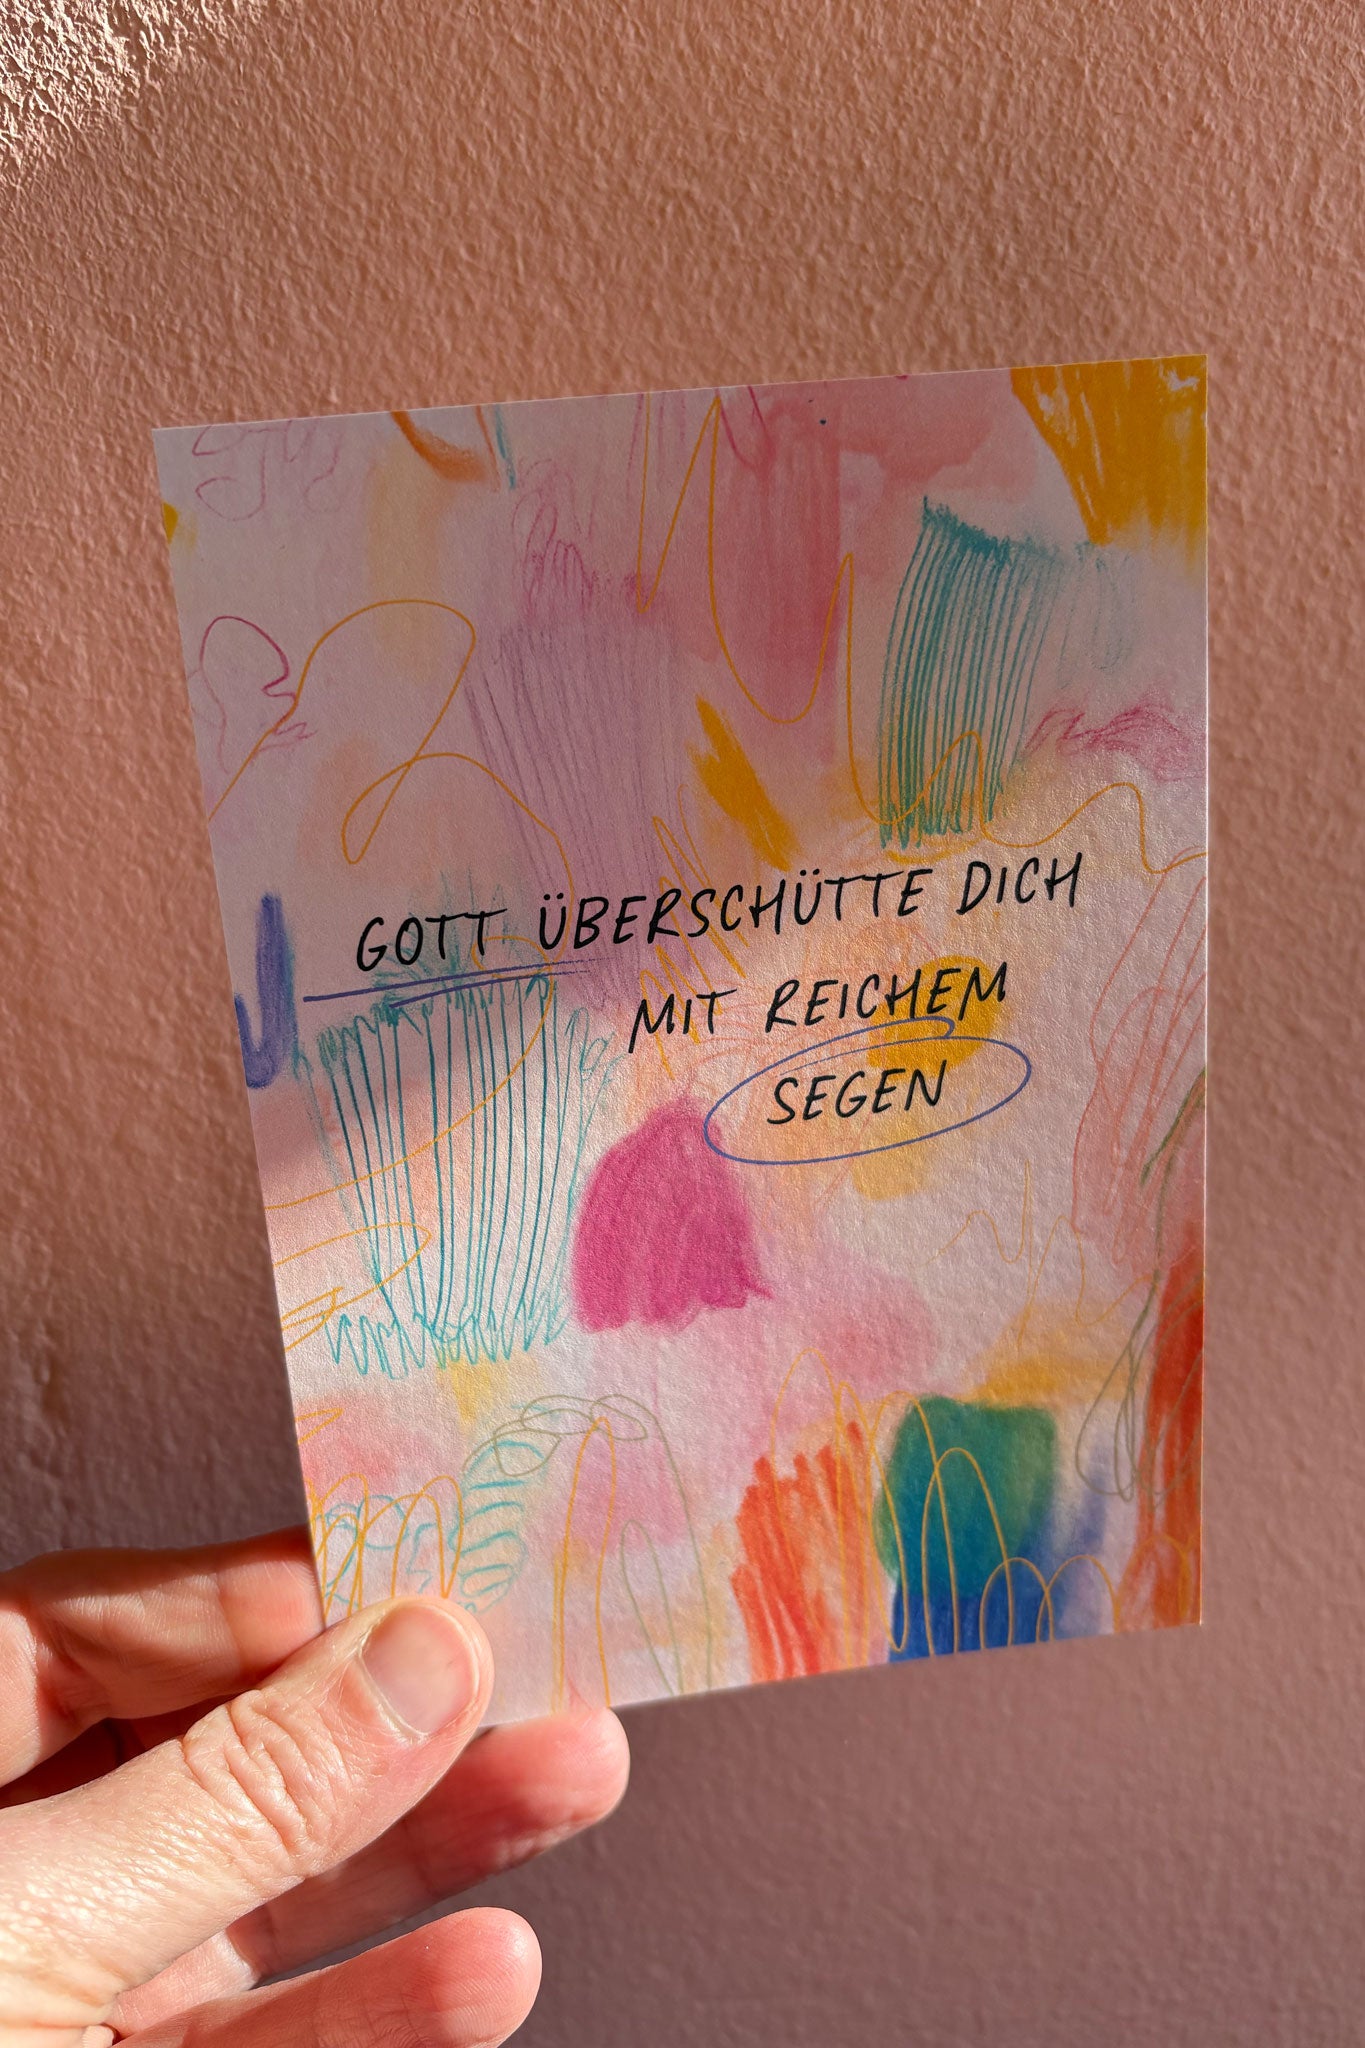 GOTT ÜBERSCHÜTTE DICH
MIT REICHEM
SEGEN